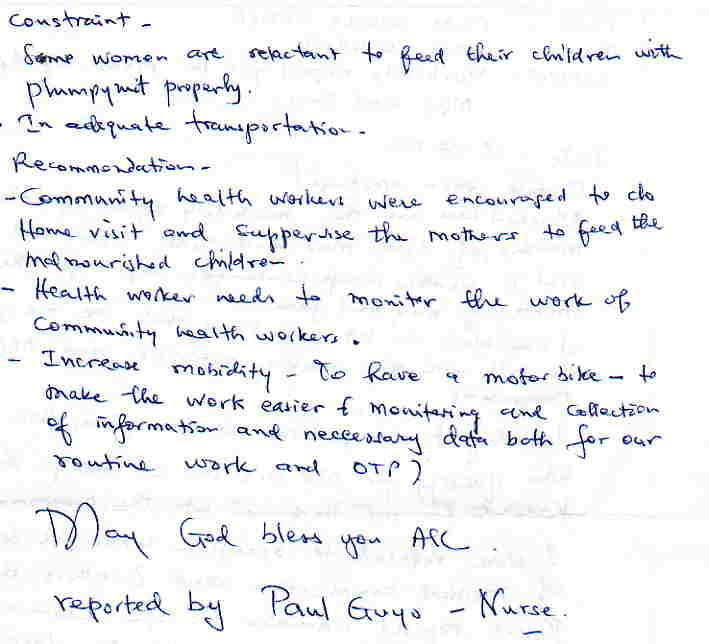 Constraint -
Some women are reluctant to feed their children with
plumpynut properly.
. In adequate transportation -
Recommendation -
- Community health workers were encouraged to do
Home visit and suppervise the mothers to feed the
malnourished children.
- Health worker needs to monitor the work of
Community health workers.
- Increase mobidity - To have a motor bike - to
make the work easier & monitoring and collection
of information and neccessary data both for our
routine work and OTP)
May God bless you AIC.
reported by Paul Guyo - Nurse.